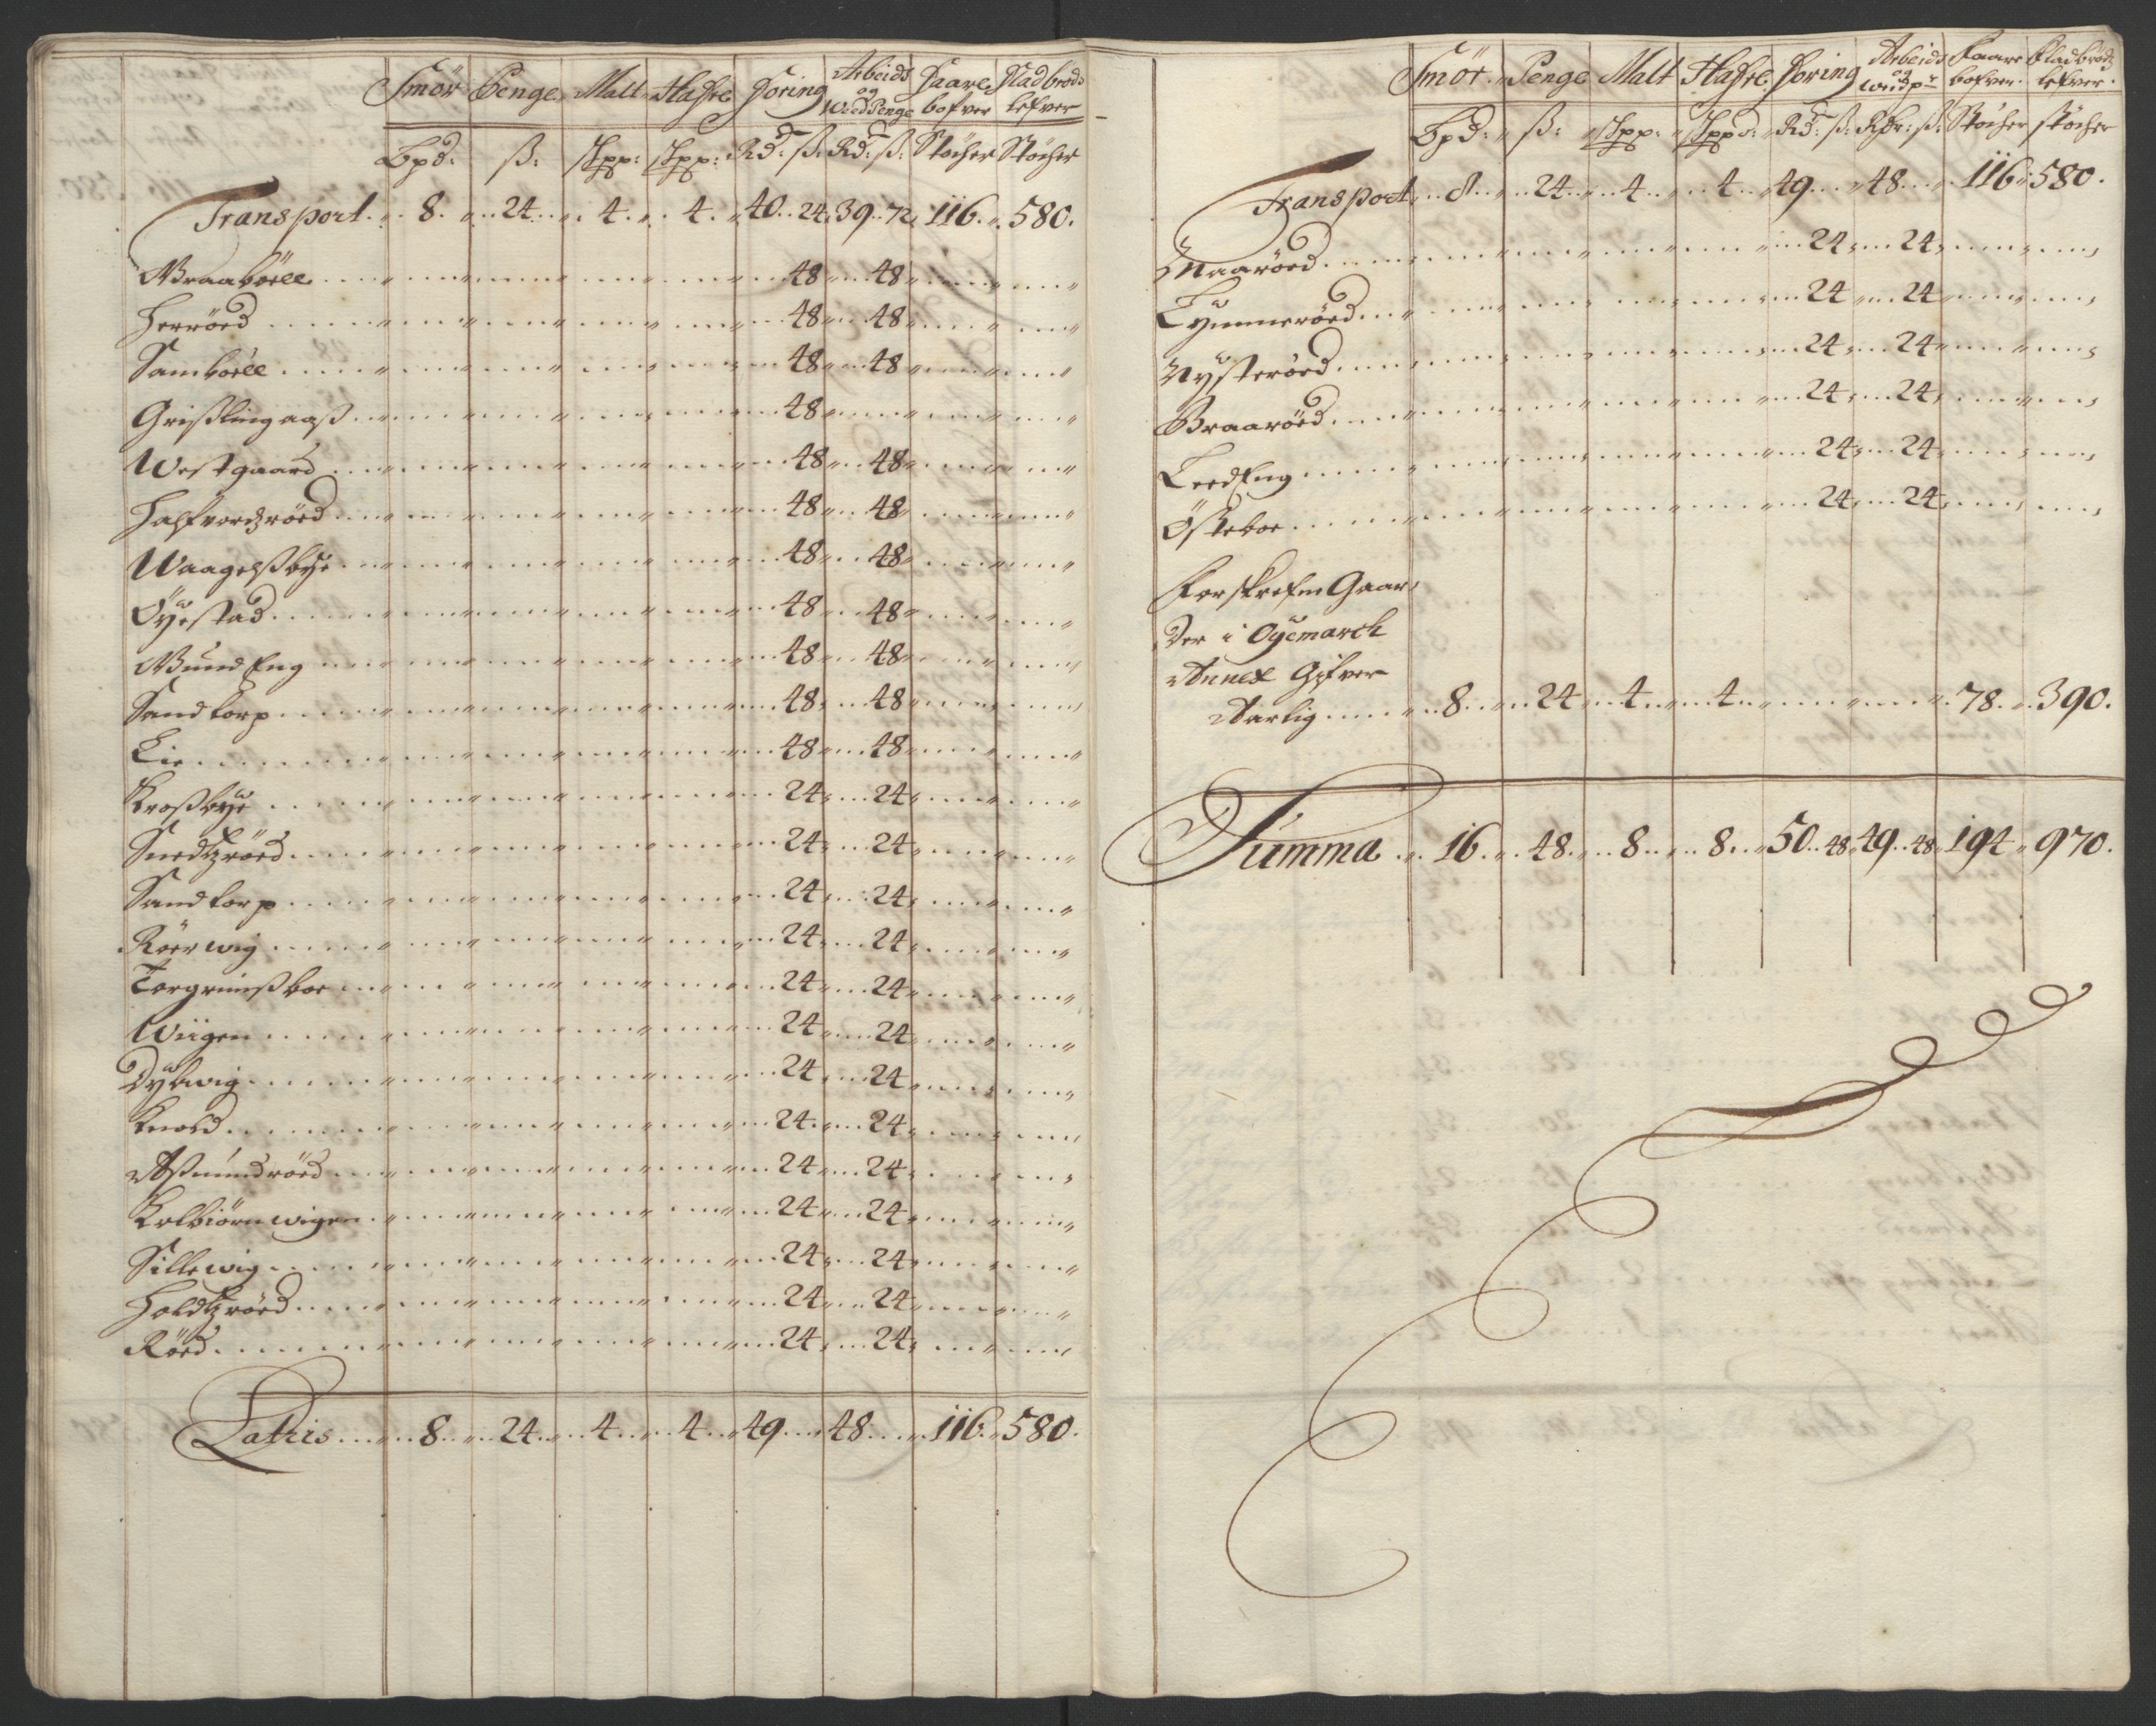 Smör Penge Malt Hafre Foring Arbeids og Wed Penge Faare bofver Fladbröds lefver
Bpd: ß: Spp: Spp: Rd: ß: Rd: ß: Stöcher Stöcher
Transport 8 24 4 4 40 24 39 72 116 580
Braaböell 48 48
Herröed 48 48
Samböell 48 48
Grißlingaaß 48
Westgaard 48 48
Halfvordzröed 48 48
Waagelßbÿe 48 48
Öÿestad 48 48
Bundeng 48 48
Sandtorp 48 48
Lie 48 48
Kroßbÿe 24 24
Smedtzröed 24 24
Sandtorp 24 24
Röerwig 24 24
Torgrimßboe 24 24
Wiigen 24 24
Dÿbwig 24 24
Knold 24 24
Aßmundröed 24 24
Kolbiörnwigen 24 24
Sillewig 24 24
Holdtzröed 24 24
Röed 24 24
Lateris 8 24 4 4 49 48 116 580
Smör Penge Malt Hafre Foring Arbeids og Wedp Faare bofver Fladbrödz lefver
Bpd: ß: Spp: Sppd: Rd: ß: Rdr: ß: Stöcher stöcher
Transport 8 24 4 4 49 48 116 580
Maaröed 24 24
Lÿmmeröed 24 24
Nÿsteröed 24 24
Braaröed 24 24
Leedeng 24 24
Östeboe 24 24
Forskrefne Gaar
der i Oÿemarch
Annex Gifver
Aarlig 8 24 4 4 78 390
Summa 16 48 8 8 50 48 49 48 194 970